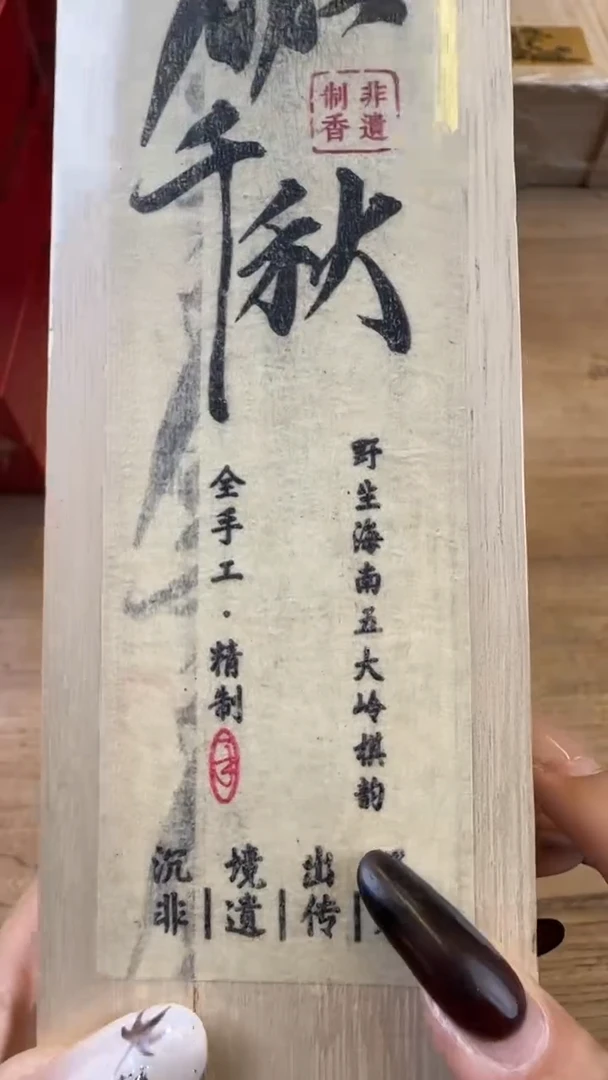 千秋
非遺
制香
野生海南五大岭棋韵
全手工·精制
沉 境 出
非|遺|传|